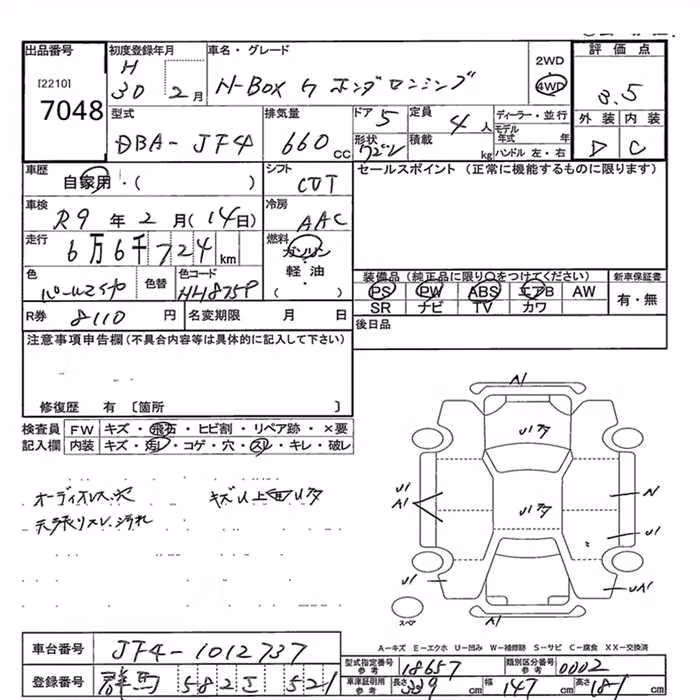 出品番号 初度登録年月 車名・グレード 2WD 評価点
[2210] H 4WD
7048 30 2月 N-Box 3.5
型式 排気量 ドア 5 定員 4人 ディーラー・並行 外装 内装
DBA-JF4 660cc 形状 ワゴン 積載 kg モデル年式 年 D C
ハンドル 左・右
車歴 自家用・( ) シフト CVT セールスポイント (正常に機能するものに限ります)
車検 R9年2月(14日) 冷房 AAC
走行 6万6千724km 燃料 ガソリン
軽油
( )
色 色替 色コード 装備品(純正品に限り○をつけてください) 新車保証書
NH875P PS PW ABS エアB AW 有・無
SR ナビ TV カワ
R券 8110円 名変期限 月 日 後日品
注意事項申告欄(不具合内容等は具体的に記入して下さい)
修復歴 有 〔箇所 〕
検査員 FW キズ・飛石・ヒビ割・リペア跡・×要
記入欄 内装 キズ・汚レ・コゲ・穴・スレ・キレ・破レ
オーディオレス、穴 キズU上面Uタ
天張りスレ、汚れ
A1
Uタ
U1
A1
Uタ
N
U1
U1
UA1
A1
スペア
A-キズ E-エクボ U-凹み W-補修跡 S-サビ C-腐食 XX-交換済
車台番号 JF4-1012737
型式指定番号 参考 18657 類別区分番号 参考 0002
登録番号 群馬 582 521
車庫証明用 参考 長さ 339cm 幅 147cm 高さ 181cm